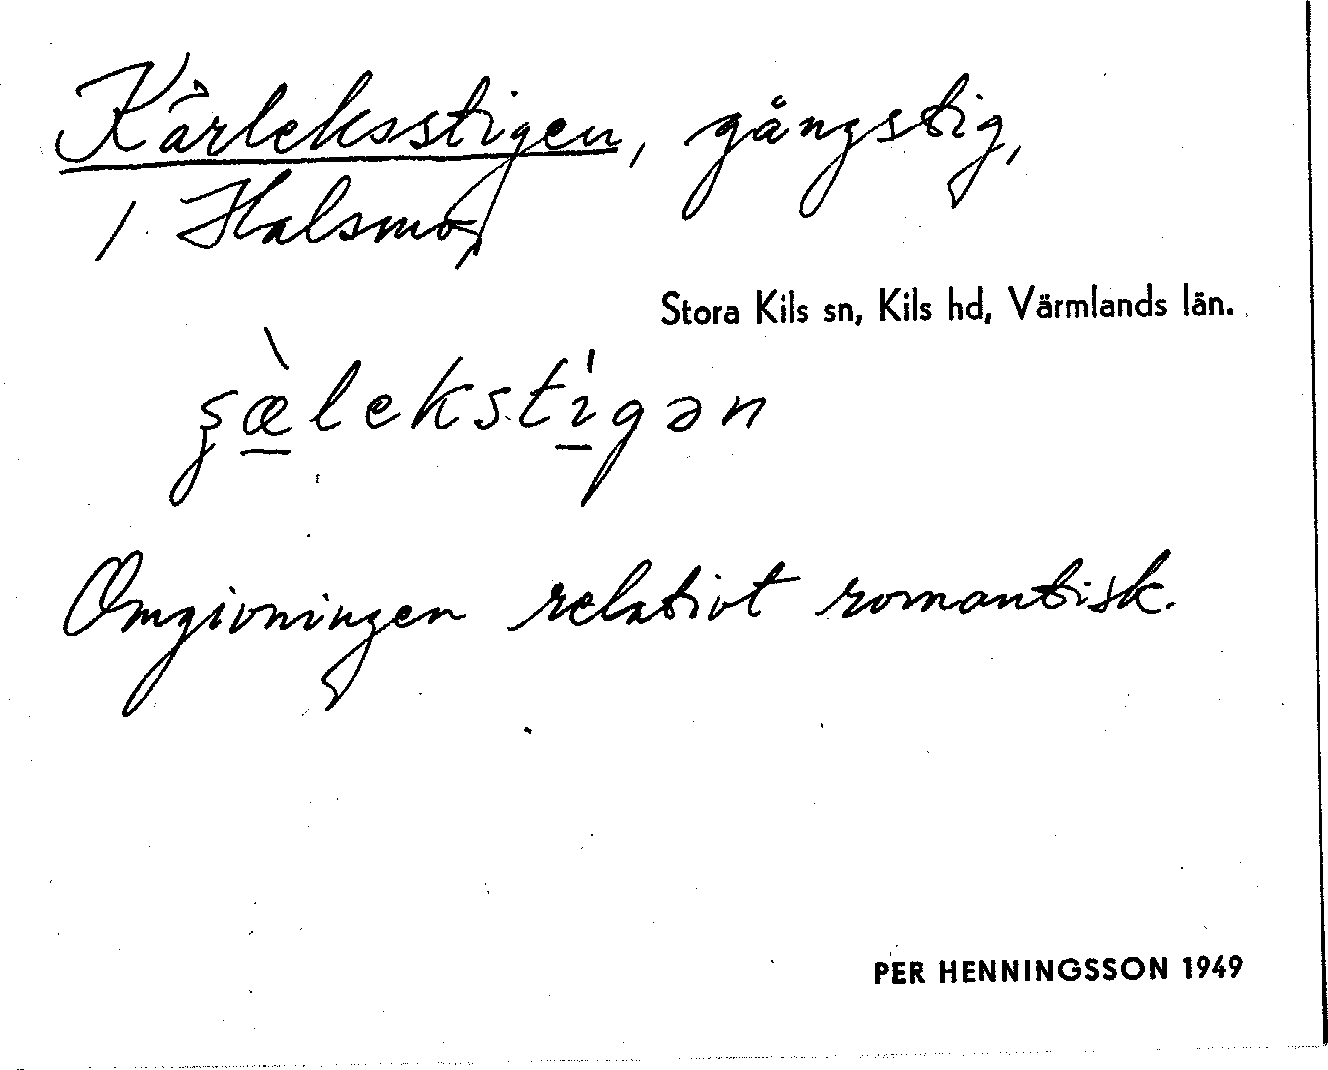 Kärleksstigen, gångstig,
i Halsmo,
Stora Kils sn, Kils hd, Värmlands län.
ʂæ̀lekstígən
Omgivningen relativt romantisk.
PER HENNINGSSON 1949